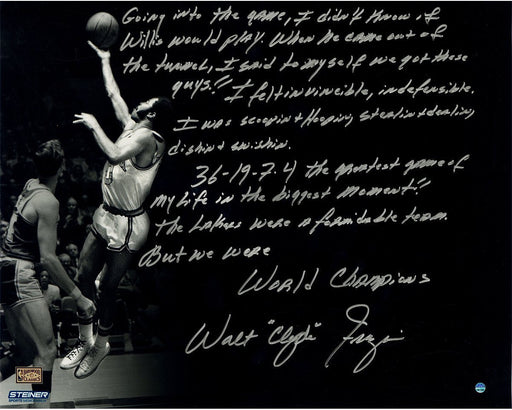 Going into the game, I didn't know if
Willis would play. When he came out of
the tunnel, I said to myself we got these
guys!! I felt invincible, indefensible.
I was scoopin + Hoopin, stealin + dealin,
dishin + swishin.
36-19-7-4 the greatest game of
my life in the biggest moment!!
The Lakers were a formidable team.
But we were
World Champions
Walt "Clyde" Frazier
STEINER